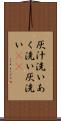 灰汁洗いあ
く洗い灰洗
い